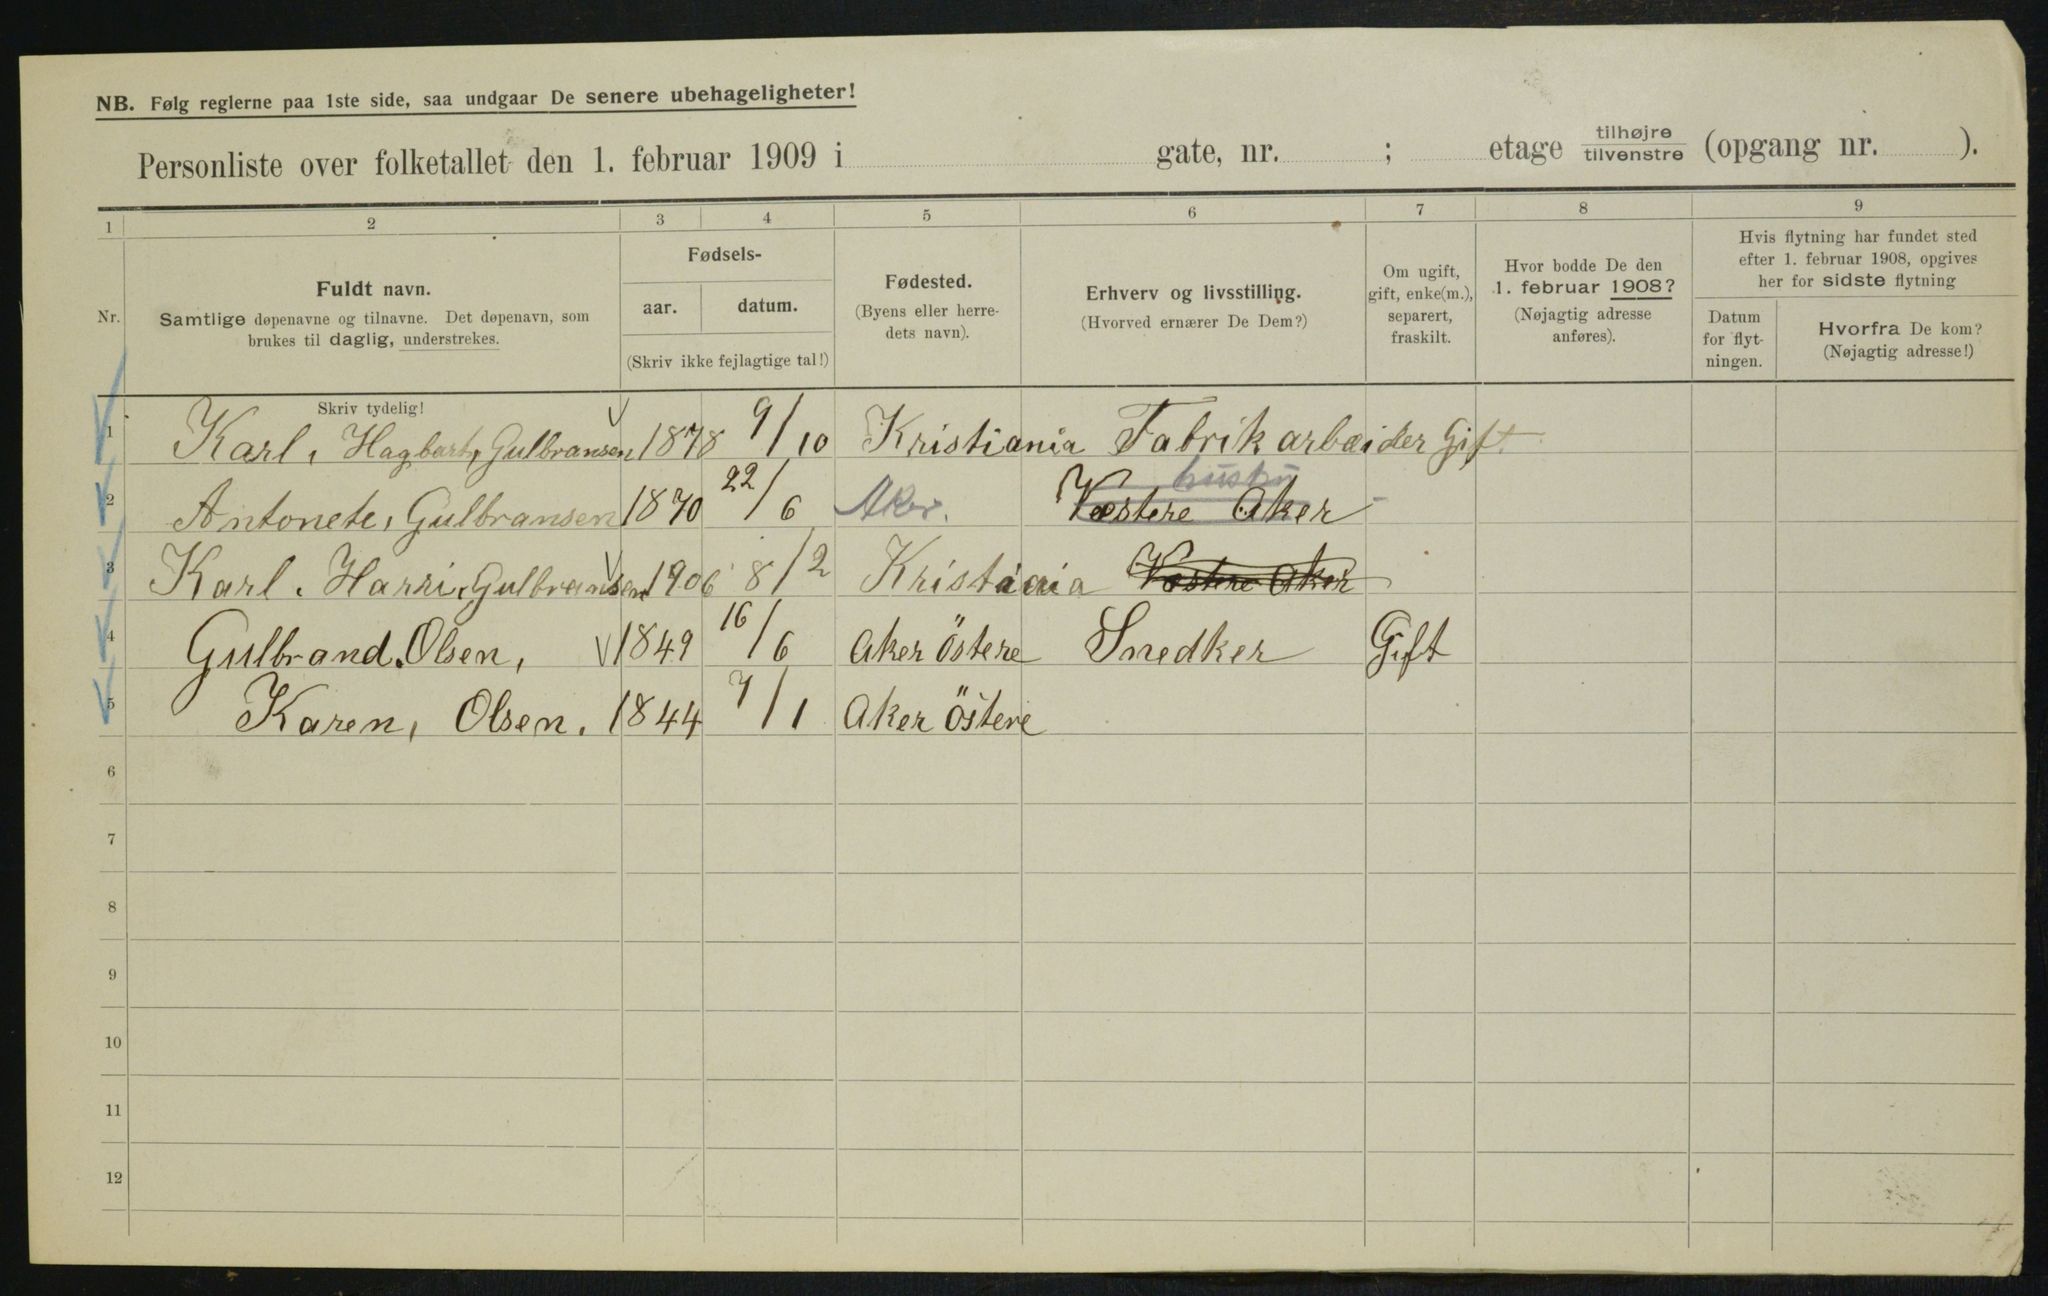 NB. Følg reglerne paa 1ste side, saa undgaar De senere ubehageligheter!
Personliste over folketallet den 1. februar 1909 i gate, nr. ; etage tilhøjre tilvenstre (opgang nr. ).
1 2 3 4 5 6 7 8 9
Nr.
Fuldt navn.
Samtlige døpenavne og tilnavne. Det døpenavn, som
brukes til daglig, understrekes.
Skriv tydelig!
Fødsels-
aar. datum.
(Skriv ikke fejlagtige tal!)
Fødested.
(Byens eller herre-
dets navn).
Erhverv og livsstilling.
(Hvorved ernærer De Dem?)
Om ugift,
gift, enke(m.),
separert,
fraskilt.
Hvor bodde De den
1. februar 1908?
(Nøjagtig adresse
anføres).
Hvis flytning har fundet sted
efter 1. februar 1908, opgives
her for sidste flytning
Datum
for flyt-
ningen.
Hvorfra De kom?
(Nøjagtig adresse!)
1 Karl, Hagbart, Gulbransen 1878 9/10 Kristiania Fabrik arbæider Gift
hustru
2 Antonete, Gulbransen 1870 22/6 Aker. Væstere Aker
3 Karl. Harri, Gulbransen 1906 8/2 Kristiania Væstere Aker
4 Gulbrand. Olsen, 1849 16/6 Aker Östere Snedker Gift
5 Karen, Olsen. 1844 7/1 Aker Östere
6
7
8
9
10
11
12